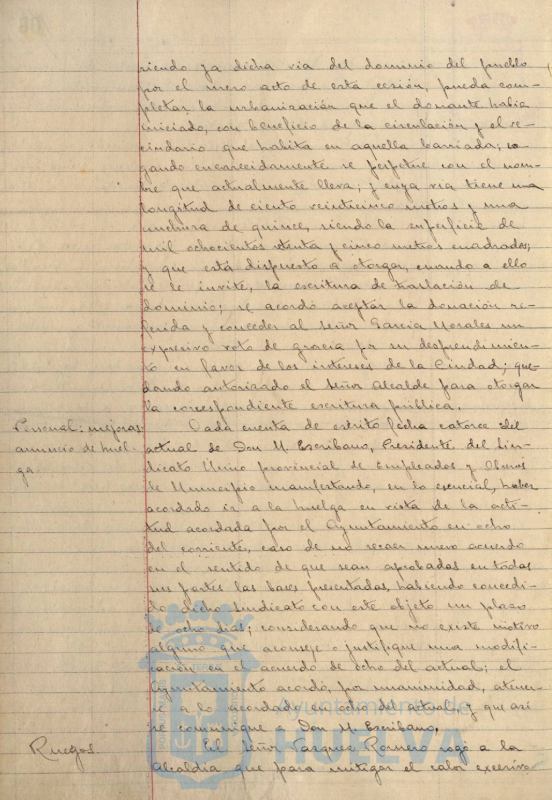 siendo ya dicha via del dominio del pueblo
por el mero acto de esta cesión, pueda com-
pletar la urbanización que el donante habia
iniciado, con beneficio de la circulación y el ve-
cindario que habita en aquella barriada; ro
gando encarecidamente se perpetue con el nom-
bre que actualmente lleva; y cuya via tiene una
longitud de ciento veinticinco metros y una
anchura de quince, siendo la superficie de
mil ochocientos setenta y cinco metros cuadrados;
y que está dispuesto a otorgar, cuando a ello
se le invite, la escritura de traslación de
dominio; se acordó aceptar la donación re-
ferida y conceder al Señor Garcia Morales un
expresivo voto de gracia por su desprendimien-
to en favor de los intereses de la Ciudad; que-
dando autorizado el Señor Alcalde para otorgar
la correspondiente escritura pública.
Personal: mejoras:
anuncio de huel-
ga.
Dada cuenta de escrito fecha catorce del
actual de Don M. Escribano, Presidente del Sin-
dicato Unico provincial de Empleados y Obreros
de Municipio manifestando, en lo esencial, haber
acordado ir a la huelga en vista de la acti-
tud acordada por el Ayuntamiento en ocho
del corriente, caso de no recaer nuevo acuerdo
en el sentido de que sean aprobadas en todas
sus partes las bases presentadas, habiendo concedi-
do dicho Sindicato con este objeto un plazo
de ocho dias; considerando que no existe motivo
alguno que aconseje o justifique una modifi-
cación en el acuerdo de ocho del actual; el
Ayuntamiento acordó, por unanimidad, atener-
se a lo acordado en ocho del actual y que asi
se comunique a Don M. Escribano.
Ruegos
El Señor Vazquez Romero rogó a la
Alcaldia que para mitigar el calor excesivo
Ayuntamiento de
HUELVA